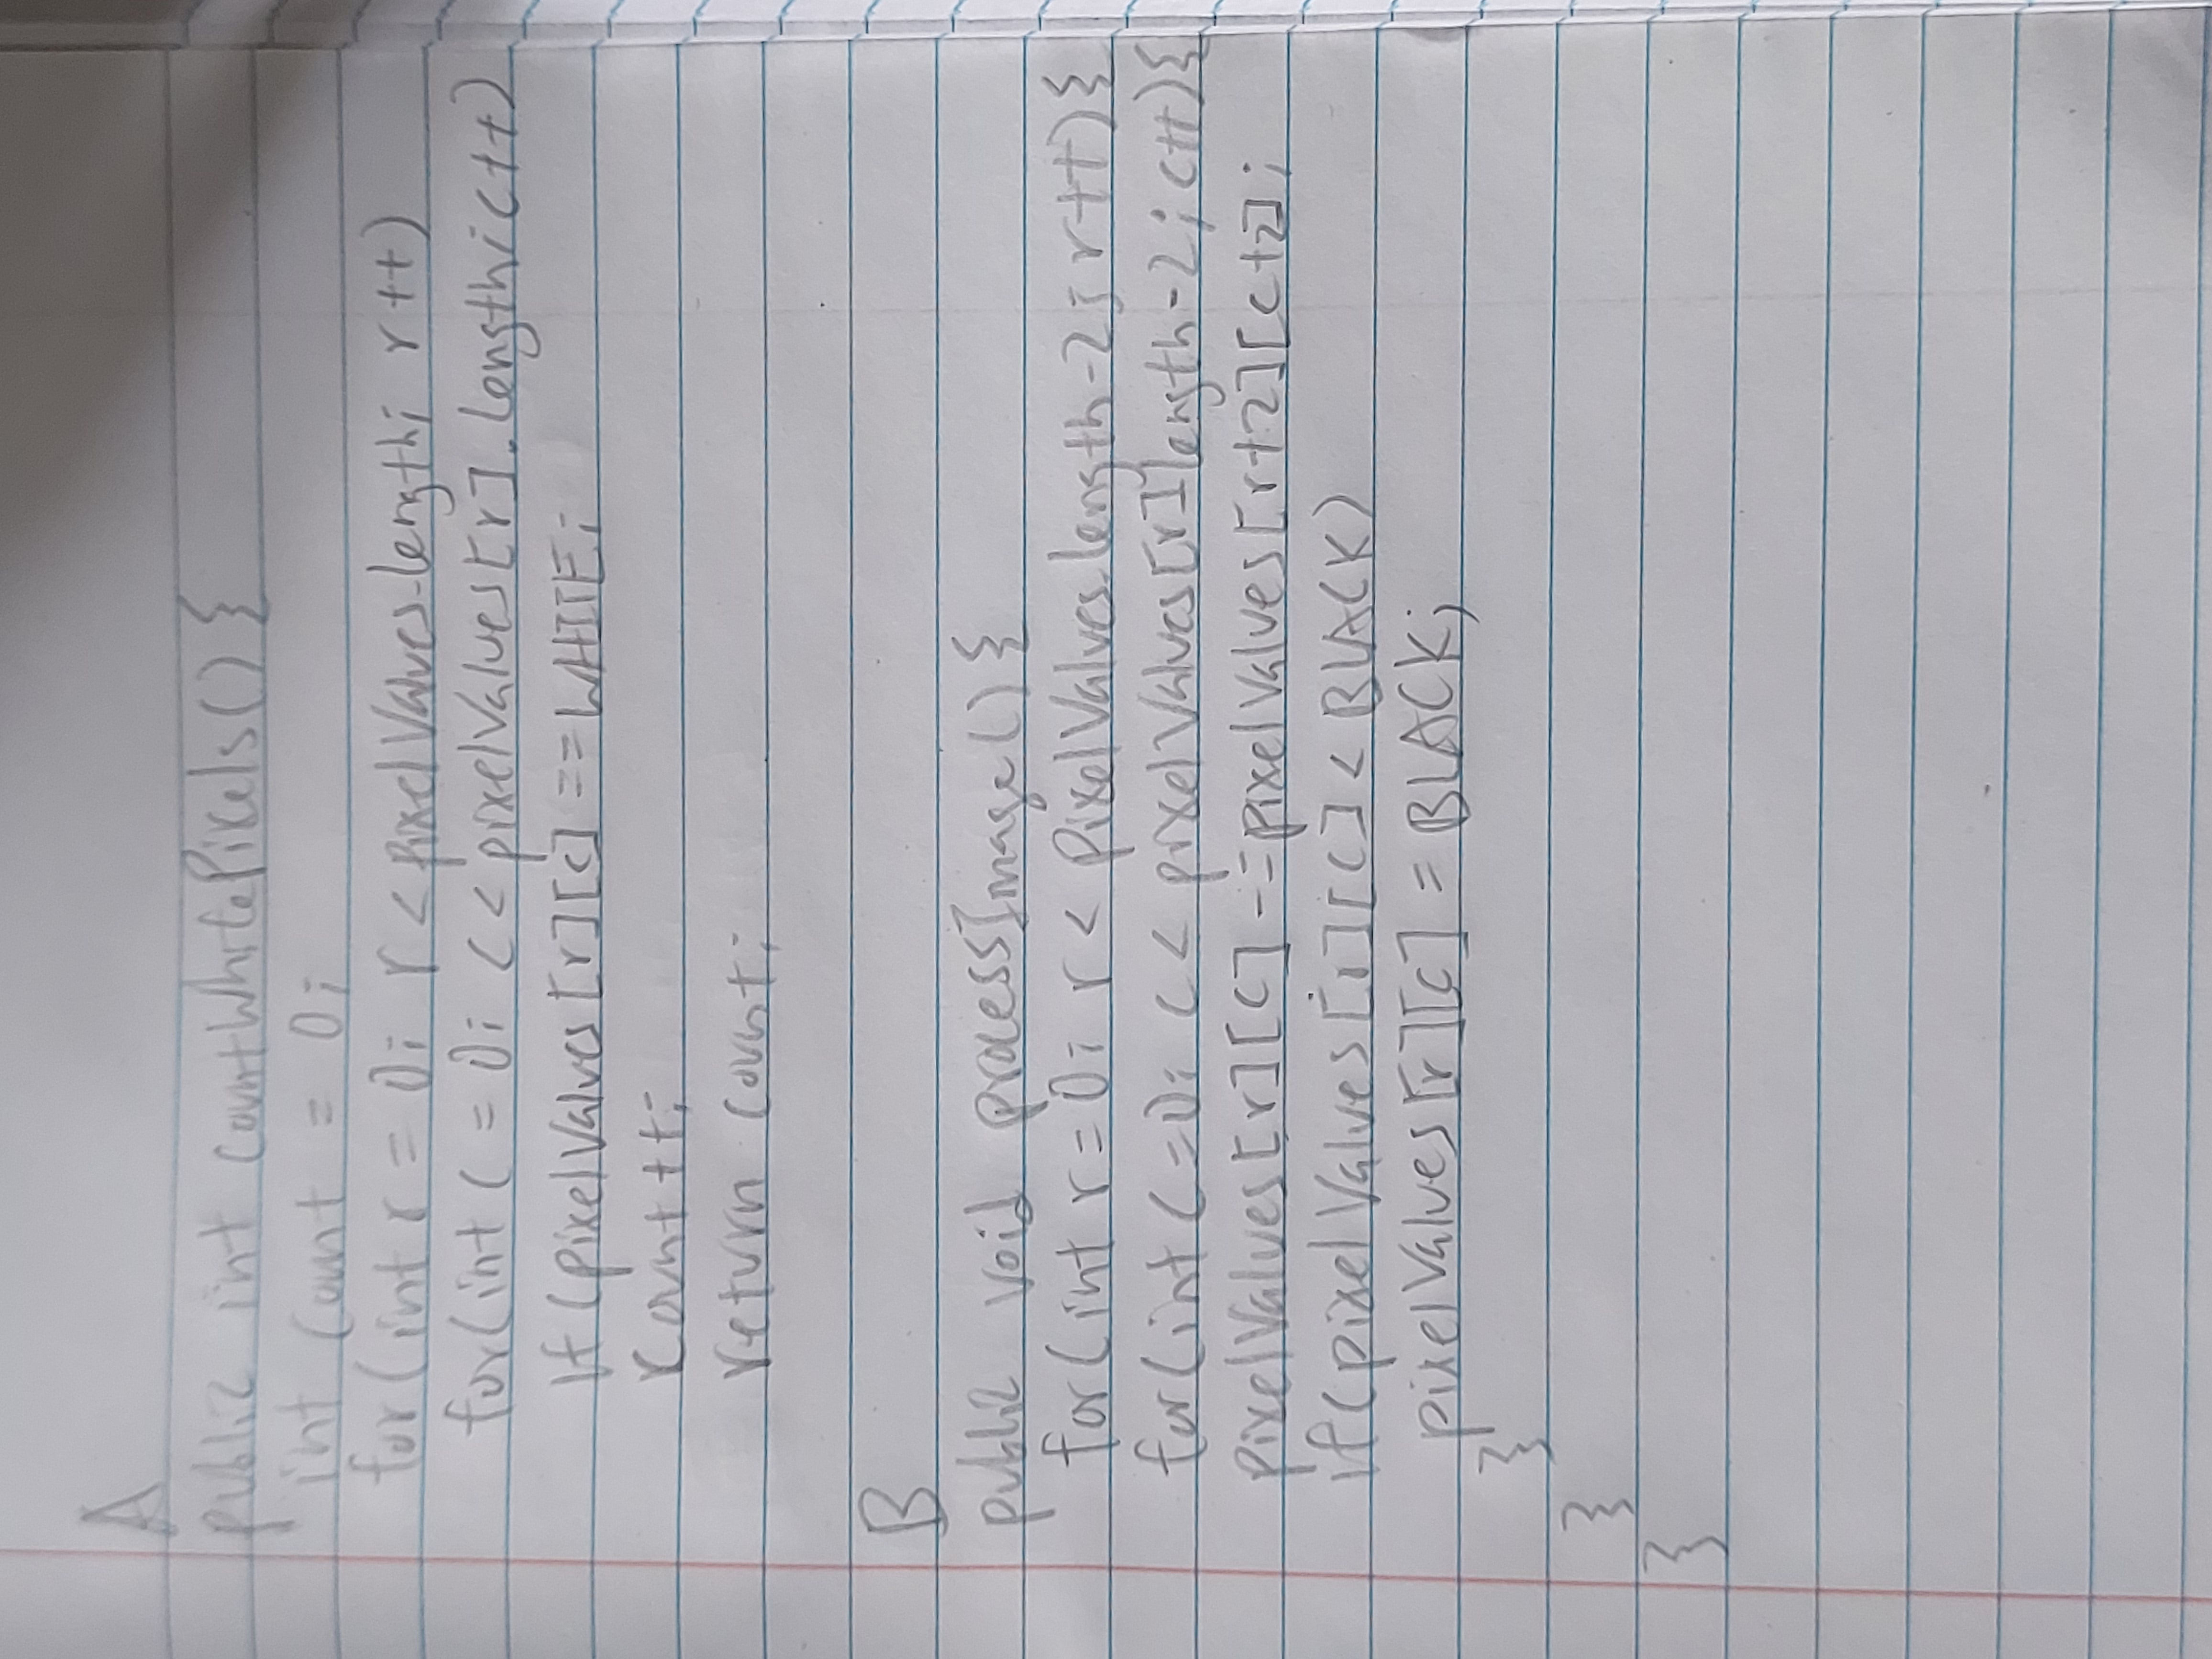 A
public int countWhitePixels() {
int count = 0;
for (int r = 0; r < pixelValues.length; r++)
for (int c = 0; c < pixelValues[r].length; c++)
If (pixelValues[r][c] ==WHITE;
count++;
return count;
B
public void processImage() {
for (int r = 0; r < pixelValues.length-2; r++){
for (int c = 0; c < pixelValues[r]length-2; c++){
pixelValues[r][c] -=pixelValues[r+2][c+2];
if (pixelValues[r][c] < BLACK)
pixelValues[r][c] = BLACK;
}
}
}